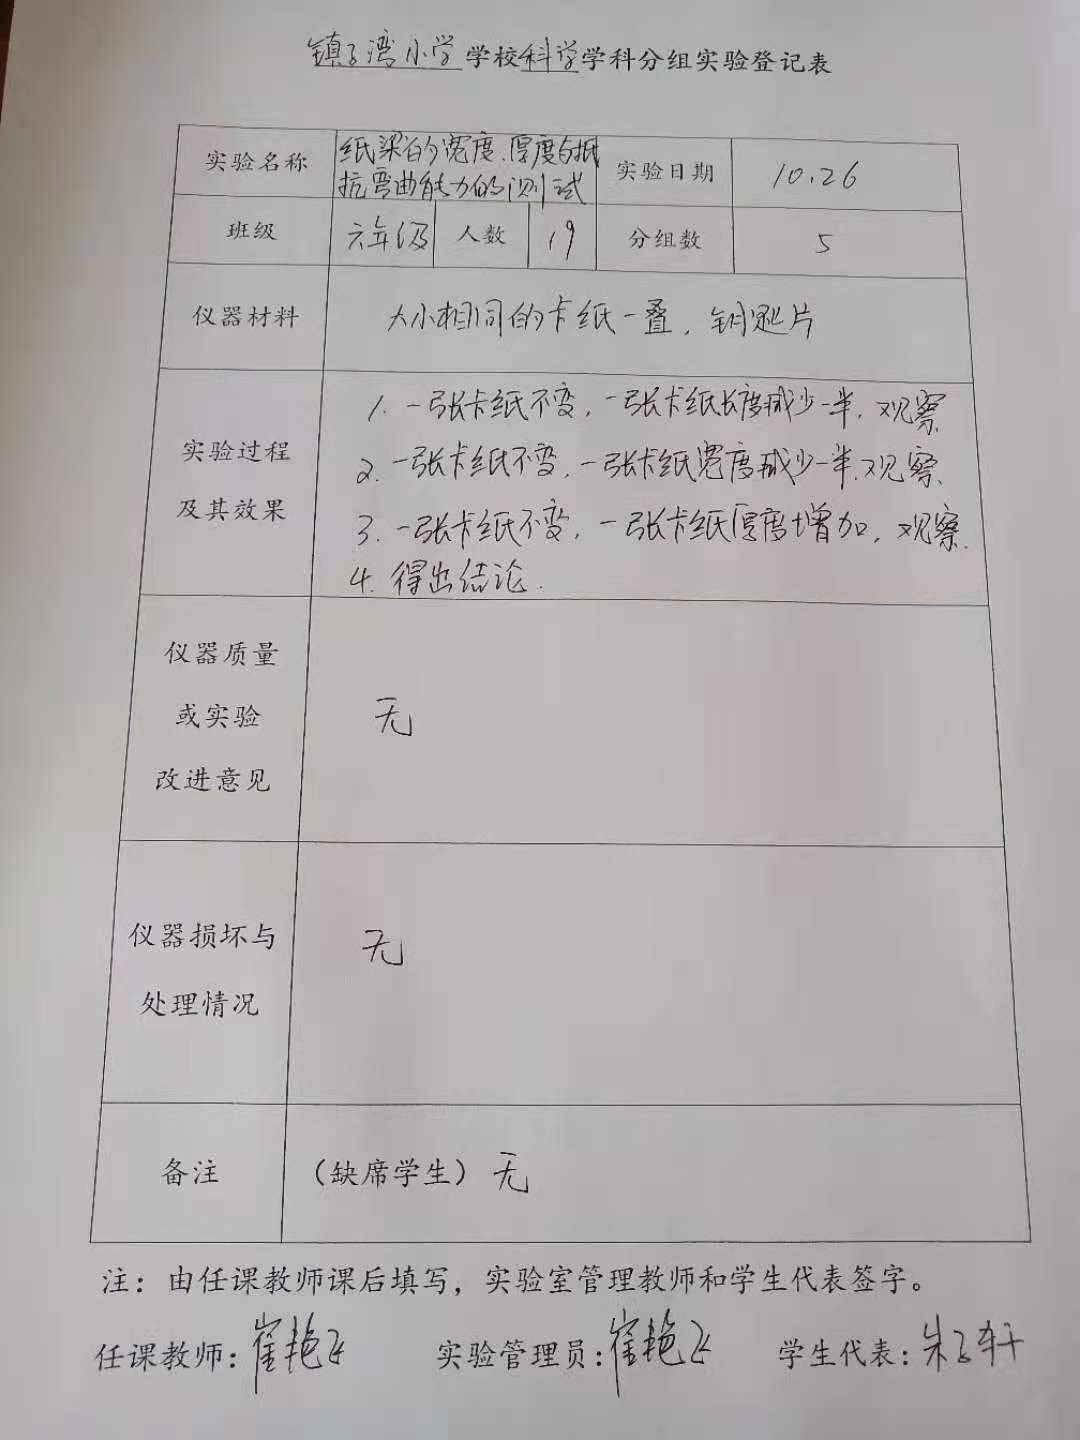 镇子湾小学学校科学学科分组实验登记表
实验名称 纸梁的宽度、厚度与抵抗弯曲能力的测试 实验日期 10.26
班级 六年级 人数 19 分组数 5
仪器材料 大小相同的卡纸一叠，钥匙片
实验过程
及其效果
1. 一张卡纸不变，一张卡纸长度减少一半，观察
2. 一张卡纸不变，一张卡纸宽度减少一半，观察
3. 一张卡纸不变，一张卡纸厚度增加，观察.
4. 得出结论.
仪器质量
或实验
改进意见
无
仪器损坏与
处理情况
无
备注 （缺席学生）无
注：由任课教师课后填写，实验室管理教师和学生代表签字。
任课教师：崔艳 实验管理员：崔艳 学生代表：朱子轩